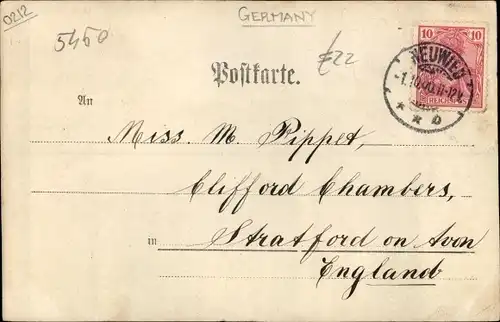 0212
GERMANY
5460
£22
10 10
NEUWIED
-1.10.00.11-12V.
* * b
REICHSPOST
Postkarte.
An
Miss. M. Pippet,
Clifford Chambers,
in Stratford on Avon
England